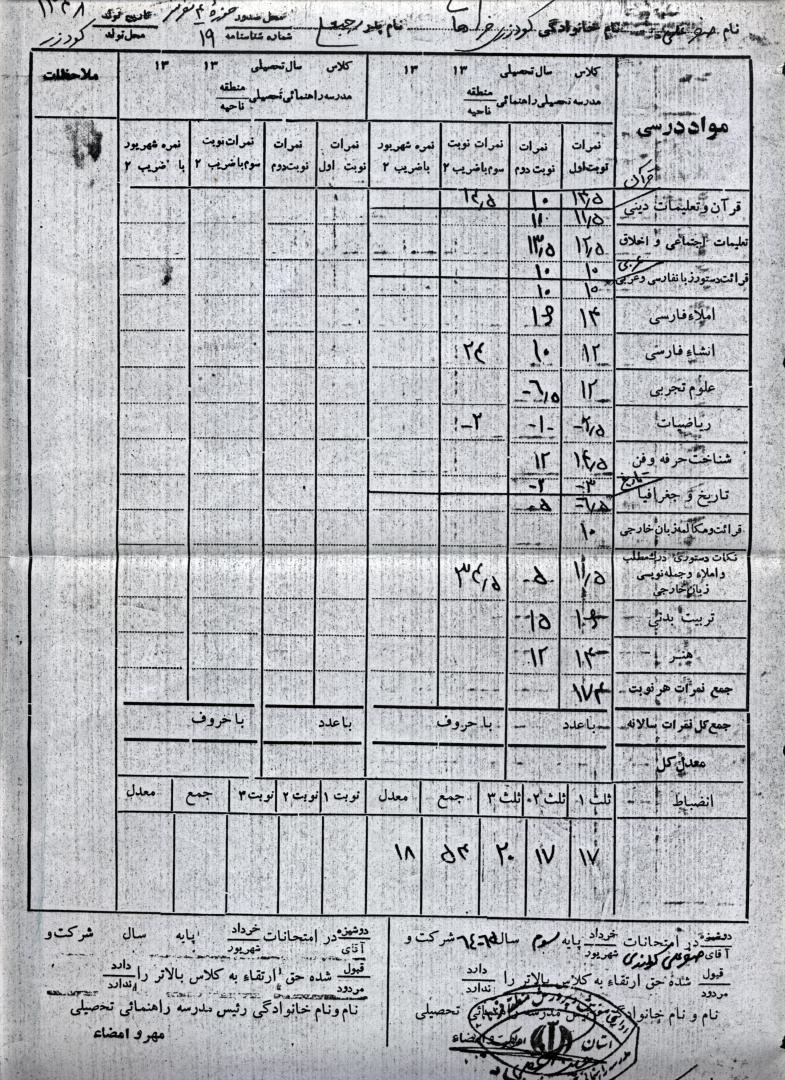 نام صفر علی نام خانوادگی گودرزی نام پدر رجبعلی محل صدور حوزه ۴ تاریخ تولد ۱۳۴۸
شماره شناسنامه ۱۹ محل تولد گودرز
مواد درسی
کلاس سال تحصیلی ۱۳ ۱۳
مدرسه تحصیلی راهنمائی منطقه ناحیه
نمرات نوبت اول
نمرات نوبت دوم
نمرات نوبت سوم با ضریب ۲
نمره شهریور با ضریب ۲
کلاس سال تحصیلی ۱۳ ۱۳
مدرسه راهنمائی تحصیلی منطقه ناحیه
نمرات نوبت اول
نمرات نوبت دوم
نمرات نوبت سوم با ضریب ۲
نمره شهریور با ضریب ۲
ملاحظات
قرآن
قرآن و تعلیمات دینی ۱۰
۱۱/۵ ۱۱
تعلیمات اجتماعی و اخلاق ۱۲/۵ ۱۳/۵
عربی ۱۰ ۱۰
قرائت دستور زبان فارسی و عربی ۱۰ ۱۰
املاء فارسی ۱۴ ۱۶
انشاء فارسی ۱۲ ۱۰ ۲۴
علوم تجربی ۱۲ ۶/۵
ریاضیات ۲/۵ ۱ ۲
شناخت حرفه و فن ۱۴/۵ ۱۲
تاریخ ۳ ۲
تاریخ و جغرافیا ۶/۵ ۵
قرائت و مکالمه زبان خارجی ۱۰
نکات دستوری درک مطلب و املاء و جمله نویسی زبان خارجی ۱۱/۵ ۵ ۳۴/۵
تربیت بدنی ۱۶ ۱۵
هنر ۱۴ ۱۲
جمع نمرات هر نوبت ۱۷۴
جمع کل نمرات سالانه با عدد با حروف با عدد با حروف
معدل کل
انضباط ثلث ۱ ثلث ۲ ثلث ۳ جمع معدل نوبت ۱ نوبت ۲ نوبت ۳ جمع معدل
۱۷ ۱۷ ۲۰ ۵۴ ۱۸
دوشیزه آقای در امتحانات خرداد شهریور پایه سوم سال ۶۵-۶۴ شرکت و
قبول مردود شده حق ارتقاء به کلاس بالاتر را دارد ندارد
نام و نام خانوادگی رئیس مدرسه راهنمائی تحصیلی
مهر و امضاء
دوشیزه آقای در امتحانات خرداد شهریور پایه سال شرکت و
قبول مردود شده حق ارتقاء به کلاس بالاتر را دارد ندارد
نام و نام خانوادگی رئیس مدرسه راهنمائی تحصیلی
مهر و امضاء